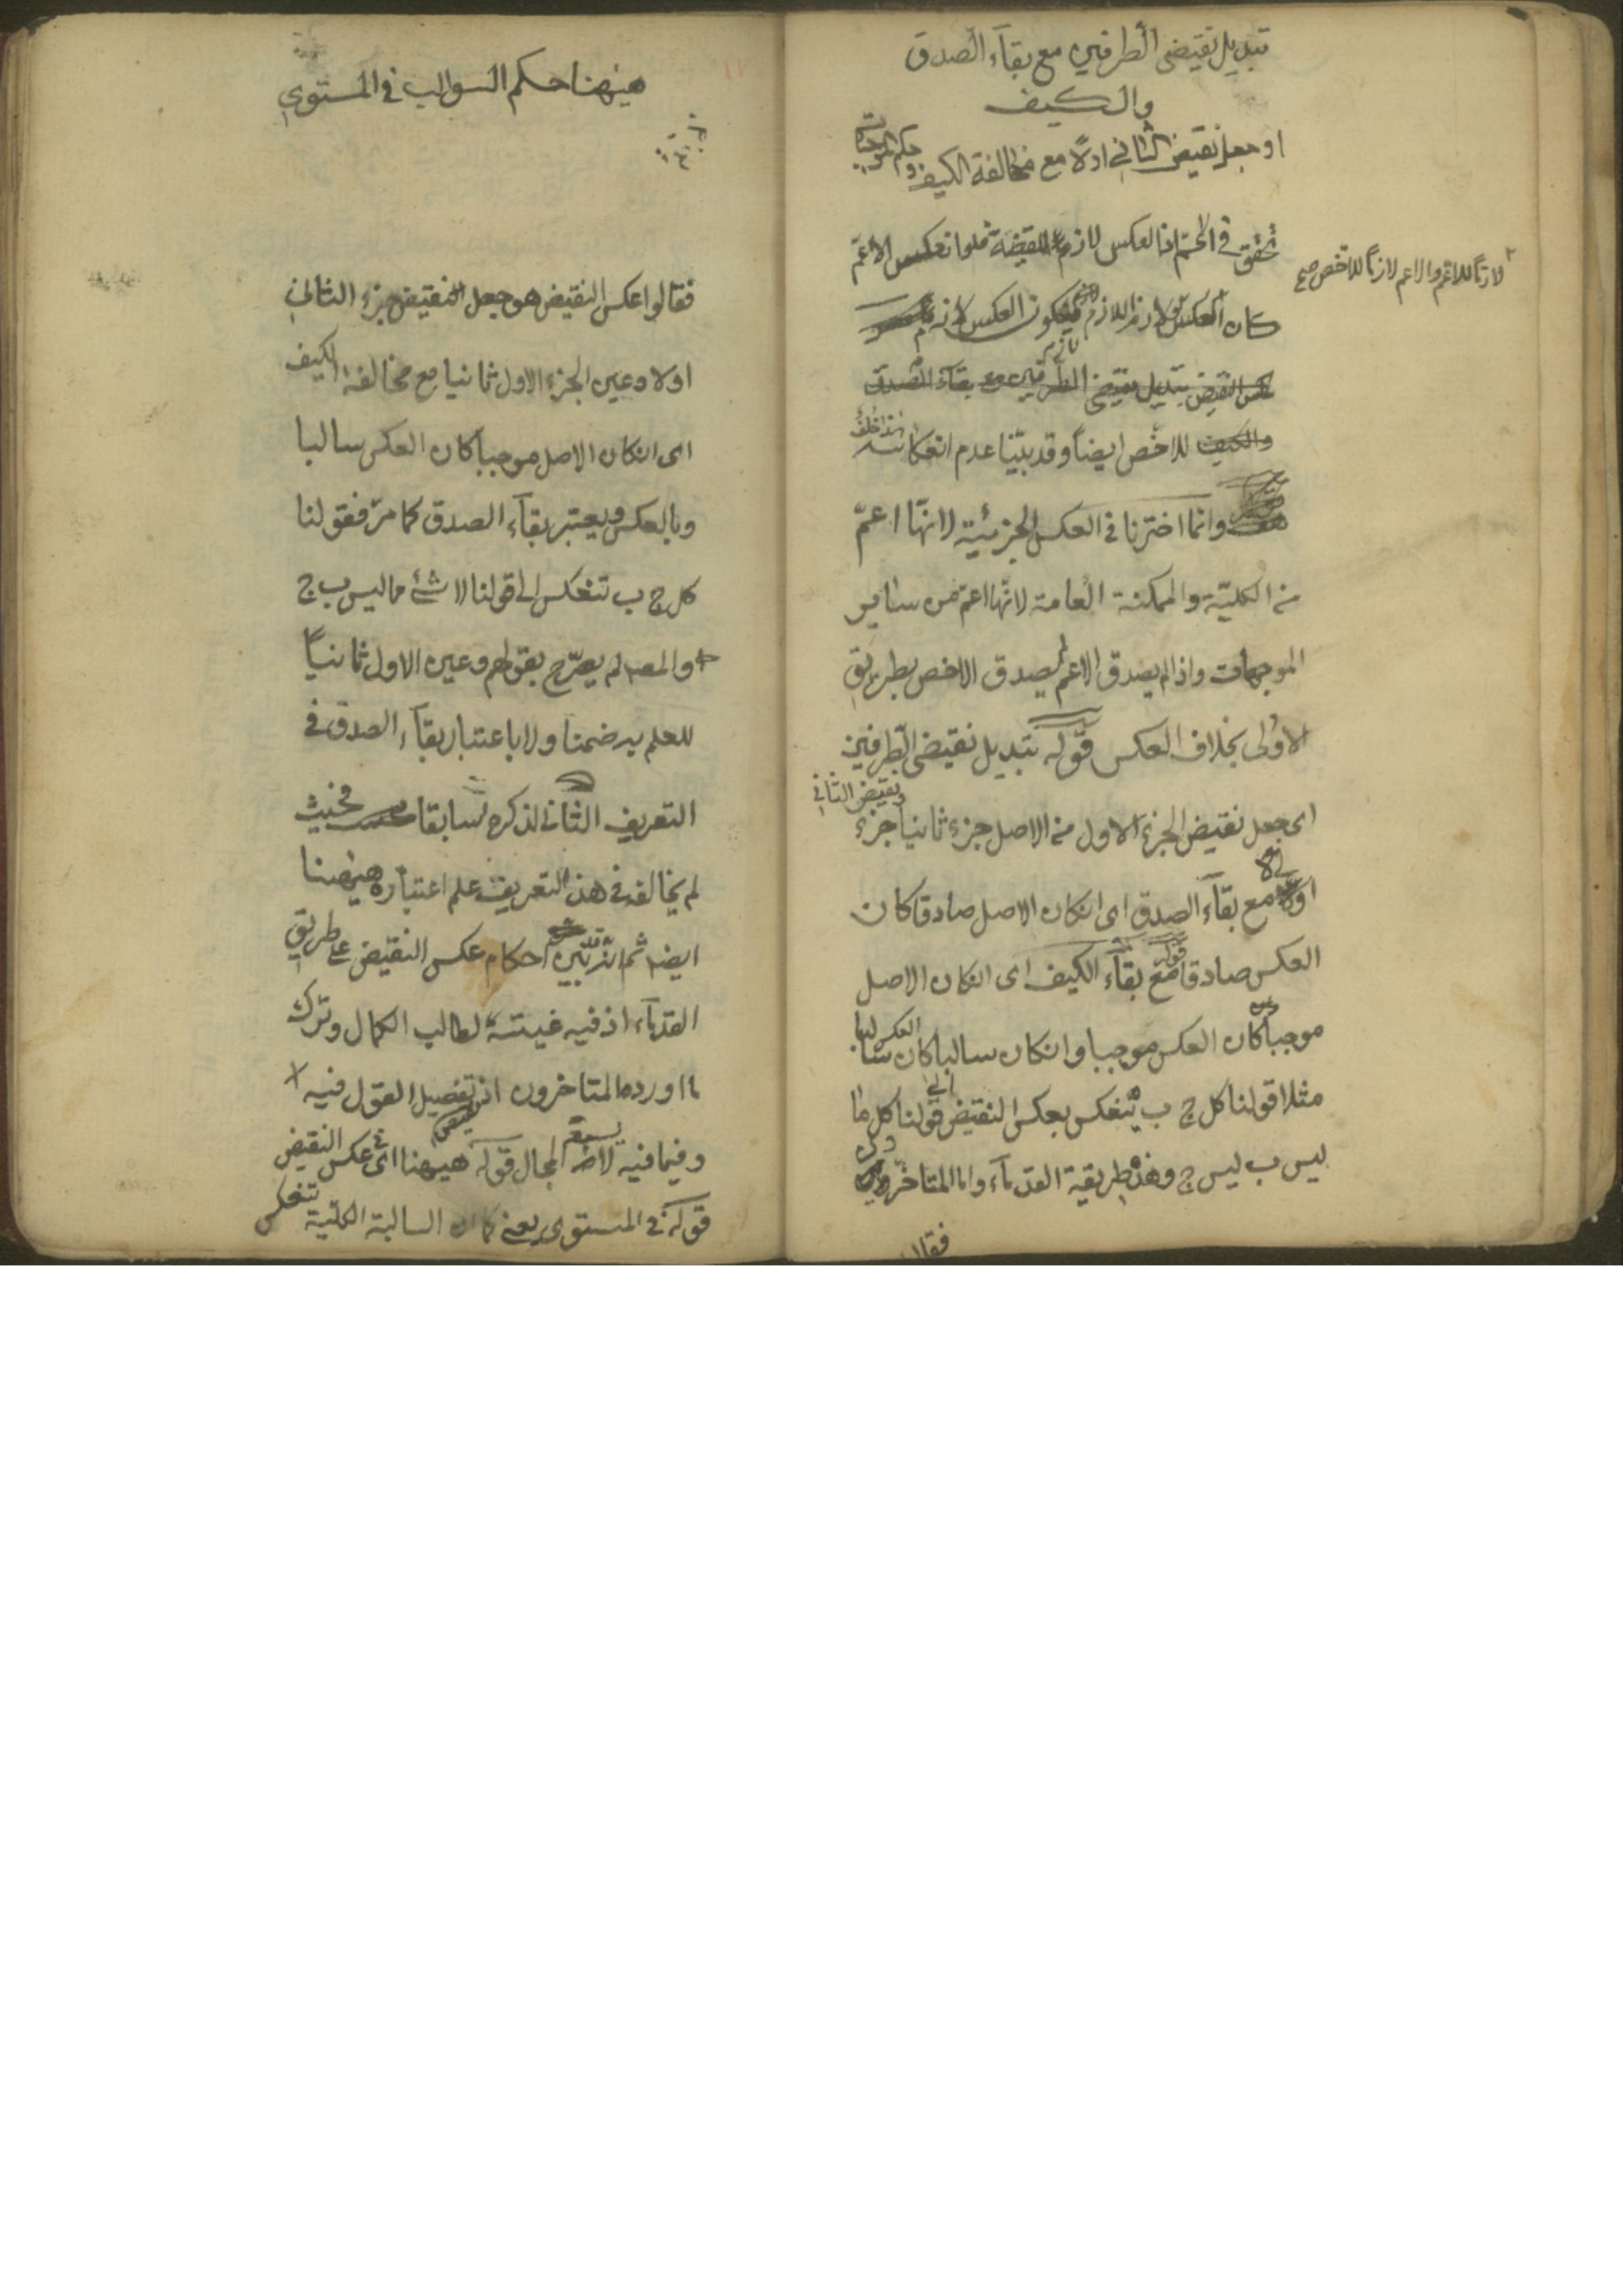 تبديل نقيضي الطرفين مع بقآء الصدق
والكيف
او جعل نقيض الثاني اولا مع مخالفة الكيف وحكم الموجبات
تحقق في الاعم اذ العكس لازم للقضية فلو انعكس الاعم
لازماً للاعم والاعم لازماً للاخص صح
كان العكس لازم اللازم فيكون العكس لازم
عكس النقيض تبديل نقيضي الطرفين مع بقآء الصدق
والكيف للاخص ايضاً وقد بينا عدم انعكاسه هذا خلف
وانما اخترنا في العكس الجزئية لانها اعم
من الكلية والممكنة العامة لانها اعم من ساير
الموجهات واذا لم يصدق الاعم لم يصدق الاخص بطريق
الاولى بخلاف العكس قوله تبديل نقيضي الطرفين
اى جعل نقيض الجزء الاول من الاصل جزء ثانيا ونقيض الثاني جزء
اولا مع بقآء الصدق اى ان كان الاصل صادقا كان
العكس صادقا قوله مع بقآء الكيف اى ان كان الاصل
موجبا كان العكس موجبا وان كان سالبا كان العكس سالبا
مثلا قولنا كل ج ب ينعكس بعكس النقيض الى قولنا كل ما
ليس ب ليس ج وهذه طريقة القدمآء واما المتاخرون
فقالوا
هيهنا حكم السوالب في المستوي
فقالوا عكس النقيض هو جعل نقيض جزء الثاني
اولا وعين الجزء الاول ثانيا مع مخالفة الكيف
اى ان كان الاصل موجبا كان العكس سالبا
وبالعكس ويعتبر بقآء الصدق كما مر فقولنا
كل ج ب تنعكس الى قولنا لا شئ مما ليس ب ج
والمصـ لم يصرح بقولهم وعين الاول ثانياً
للعلم به ضمنا ولا باعتبار بقآء الصدق في
التعريف الثاني لذكره سابقا فحيث
لم يخالفه في هذا التعريف علم اعتباره هيهنا
ايضا ثم انه بين احكام عكس النقيض على طريق
القدمآء اذ فيه غنية لطالب الكمال وترك
ما اورده المتاخرون اذ تفصيل القول فيه
وفيما فيه لا يسعه المجال قوله هيهنا اى في عكس النقيض
قوله في المستوى يعنى كما ان السالبة الكلية تنعكس